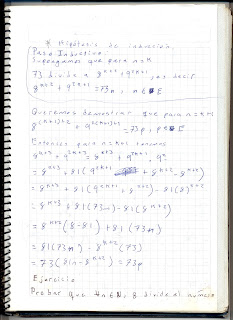 * Hipótesis de inducción.
Paso Inductivo
Supongamos que para n=k
73 divide a 8^{k+2} + 9^{2k+1}, es decir
8^{k+2} + 9^{2k+1} = 73n, n ∈ Z
Queremos demostrar que para n=k+1
8^{(k+1)+2} + 9^{2(k+1)+1} = 73p, p ∈ Z
Entonces para n=k+1 tenemos
8^{k+3} + 9^{2k+3} = 8^{k+3} + 9^{2k+1} · 9^2
= 8^{k+3} + 81(9^{2k+1} + 8^{k+2} - 8^{k+2})
= 8^{k+3} + 81(9^{2k+1} + 8^{k+2}) - 81(8^{k+2})
= 8^{k+3} + 81(73n) - 81(8^{k+2})
= 8^{k+2}(8-81) + 81(73n)
= 81(73n) - 8^{k+2}(73)
= 73(81n - 8^{k+2}) = 73p
Ejercicio
Probar que ∀n∈N, 8 divide al número